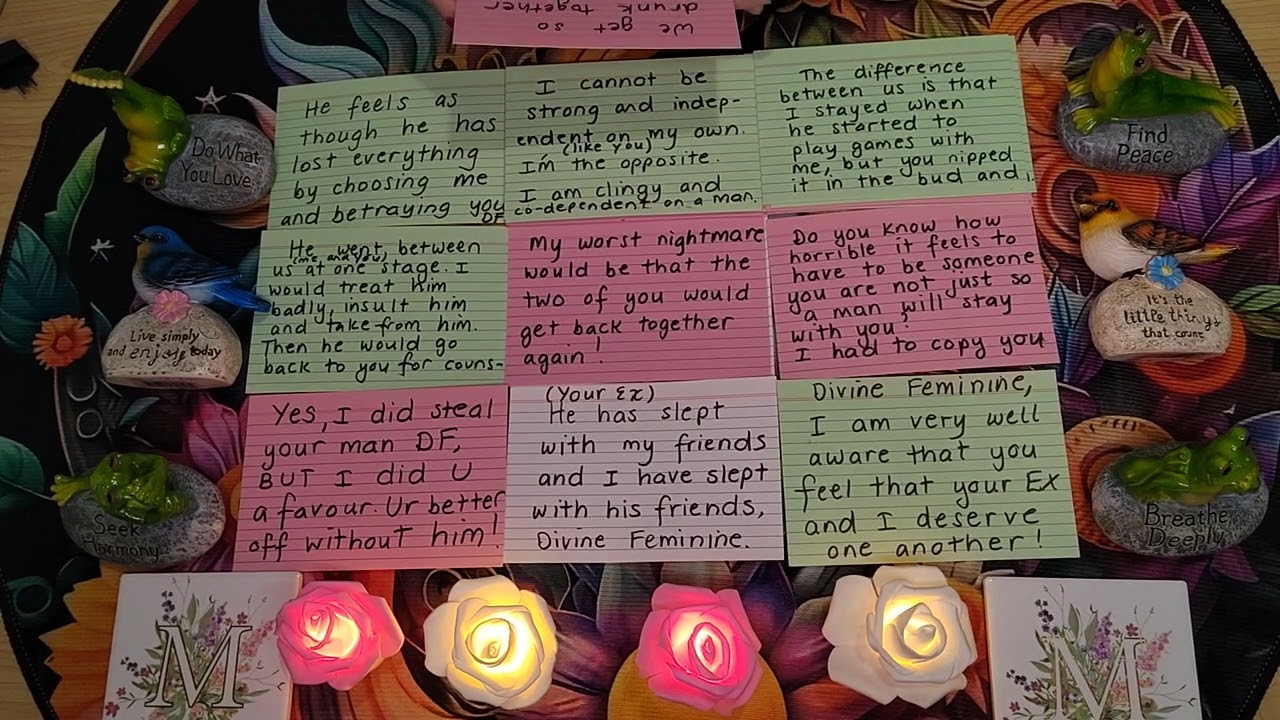 we get so
drunk together
He feels as
though he has
lost everything
by choosing me
and betraying you
DF
I cannot be
strong and indep-
endent on my own.
(like you)
I'm the opposite.
I am clingy and
co-dependent on a man.
The difference
between us is that
I stayed when
he started to
play games with
me, but you nipped
it in the bud and
He went between
(me and you)
us at one stage. I
would treat him
badly, insult him
and take from him.
Then he would go
back to you for couns-
My worst nightmare
would be that the
two of you would
get back together
again!
Do you know how
horrible it feels to
have to be someone
you are not just so
a man will stay
with you?
I had to copy you
Yes, I did steal
your man DF,
BUT I did U
a favour. Ur better
off without him!
(Your Ex)
He has slept
with my friends
and I have slept
with his friends,
Divine Feminine.
Divine Feminine,
I am very well
aware that you
feel that your Ex
and I deserve
one another!
Do What
You Love
Find
Peace
Live simply
and enjoy today
It's the
little things
that count
Seek
Harmony
Breathe
Deeply
M
M